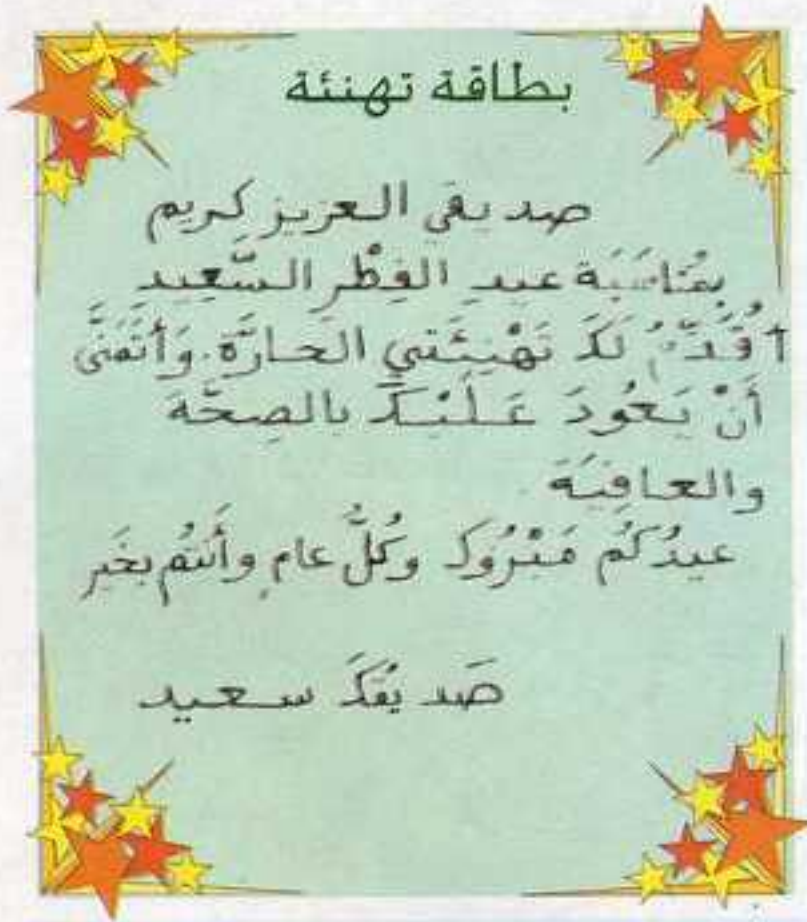 بطاقة تهنئة
صديقي العزيز كريم
بمُناسَبَة عيدِ الفِطْرِ السَّعِيد
أُقَدِّمُ لَكَ تَهْنِئَتي الحارَّة. وَأَتَمَنَّى
أَنْ يَعُودَ عَلَيْكَ بالصِحَّة
والعافِيَة
عيدُكُم مَبْرُوك وكُلُّ عام وأَنتُم بخَير
صَديقُكَ سعيد